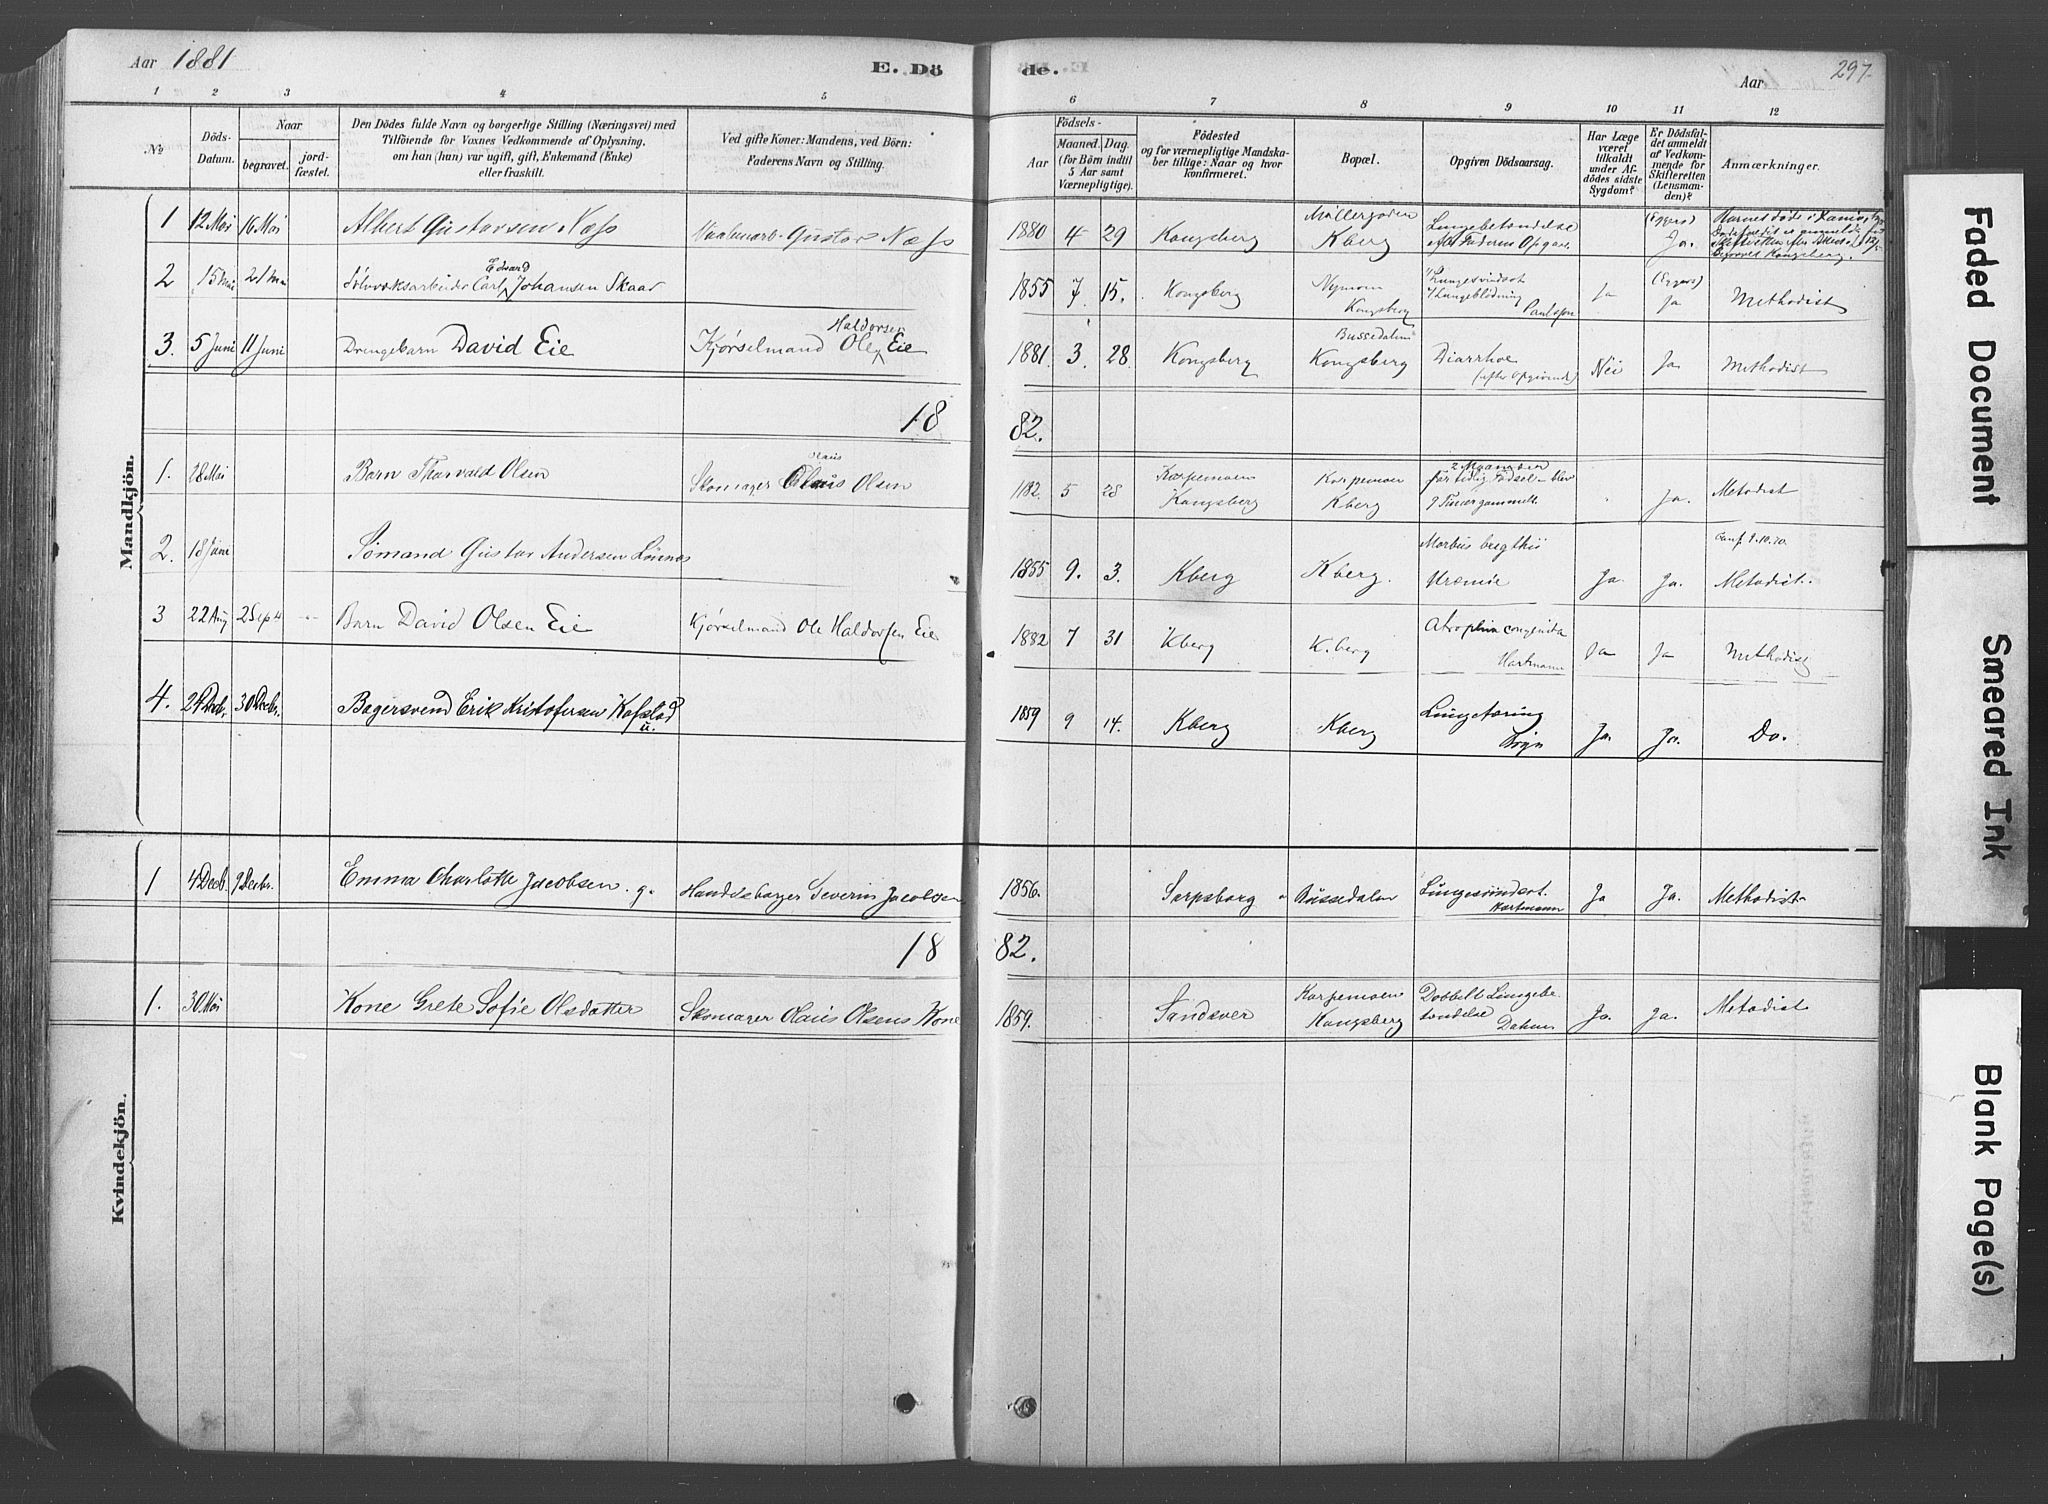 Aar 1881
E. Dö
de.
Aar
297.
1 2 3 4 5 6 7 8 9 10 11 12
№
Döds-
Datum.
Naar
begravet.
jord-
fæstet.
Den Dödes fulde Navn og borgerlige Stilling (Næringsvei) med
Tilföiende for Voxnes Vedkommende af Oplysning,
om han (hun) var ugift, gift, Enkemand (Enke)
eller fraskilt.
Ved gifte Koner: Mandens, ved Börn:
Faderens Navn og Stilling.
Födsels-
Aar
Maaned. Dag.
(for Börn indtil
5 Aar samt
Værnepligtige).
Födested
og for værnepligtige Mandska-
ber tillige: Naar og hvor
konfirmeret.
Bopæl.
Opgiven Dödsaarsag.
Har Læge
været
tilkaldt
under Af-
dödes sidste
Sygdom?
Er Dödsfal-
det anmeldt
af Vedkom-
mende for
Skifteretten
(Lensman-
den)?
Anmærkninger.
Mandkjön.
1 12 Mai 16 Mai Albert Gustavsen Næss Gustav Næss 1880 4 29 Kongsberg Møllergaden Kberg Lungebetændelse efter Faderens Opgave (Eggers) Ja.
2 15 Mai 21 Mai Sølvværksarbeider Carl Edvard Johansen Skaar 1855 7 15. Kongsberg Nymoen Kongsberg Lungesvindsot Lungeblödning Paulsen Ja (Eggers) Ja Methodist
3. 5 Juni 11 Juni Drengebarn David Eie Kjørselmand Ole Haldorsen Eie 1881. 3. 28 Kongsberg Bussedalen Kongsberg Diarrhoe (efter Opgivende) Nei Ja Methodist
18 82.
1. 28 Mai Barn Thorvald Olsen Skomager Olaus Olsen 1882. 5 28 Karpemoen Kongsberg Karpemoen Kberg 2 Maaneder for tidlig Födsel - blev 9 Timer gammelt. " Ja. Metodist
2. 18 Juni Sømand Gustav Andersen 1855 9. 3. Kberg Kberg. Morbus Uremie Ja. Ja. Conf. 9.10.70. Metodist.
3 22 Aug 2 Sept Barn David Olsen Eie Kjørselmand Ole Haldorsen Eie 1882 7 31 Kberg K.berg Atrophia congenita Hartmann Ja Ja Methodist
4. 24 Decbr. 30 Decbr. Bagersvend Erik Kristofersen Kofstad u. 1859 9 14. Kberg Kberg Lungetæring Ja. Ja. Do.
Kvindekjön.
1 4 Decb. 9 Decbr. Emma Charlotte Jacobsen. g. Severin Jacobsen 1856. Sarpsborg Bussedalen Lungesvindsot. Hartmann Ja Ja. Methodist
18 82.
1. 30 Mai Kone Grete Sofie Olsdatter Skomager Olaus Olsens Kone 1859. Sandsver Karpemoen Kongsberg Dobbelt Lungebetændelse Ja. Ja. Metodist
Faded Document
Smeared Ink
Blank Page(s)